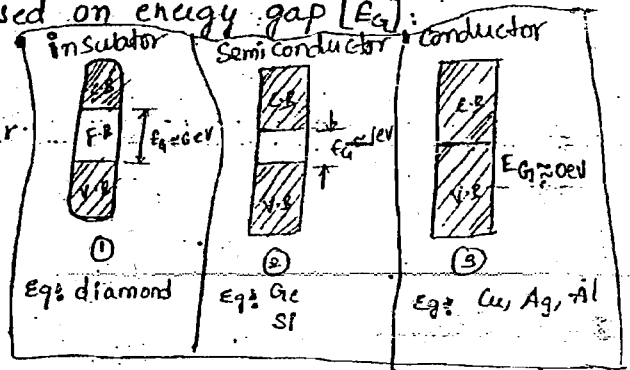 sed on energy gap [EG]:
insulator
C.B
F.B
EG≈6eV
V.B
①
Eg: diamond
Semiconductor
C.B
EG≈1eV
V.B
②
Eg: Ge
Si
conductor
C.B
V.B
EG≈0eV
③
Eg: Cu, Ag, Al
r.